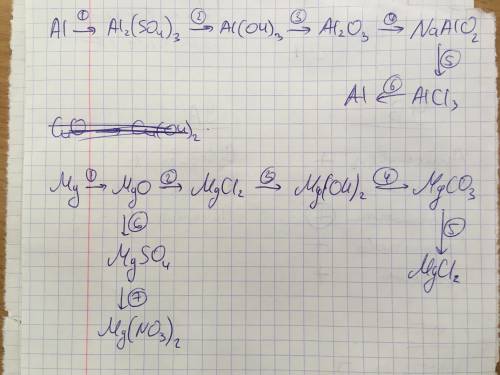 Al ①→ Al₂(SO₄)₃ ②→ Al(OH)₃ ③→ Al₂O₃ ④→ NaAlO₂
↓⑤
Al ←⑥ AlCl₃
Mg ①→ MgO ②→ MgCl₂ ③→ Mg(OH)₂ ④→ MgCO₃
↓⑥ ↓⑤
MgSO₄ MgCl₂
↓⑦
Mg(NO₃)₂